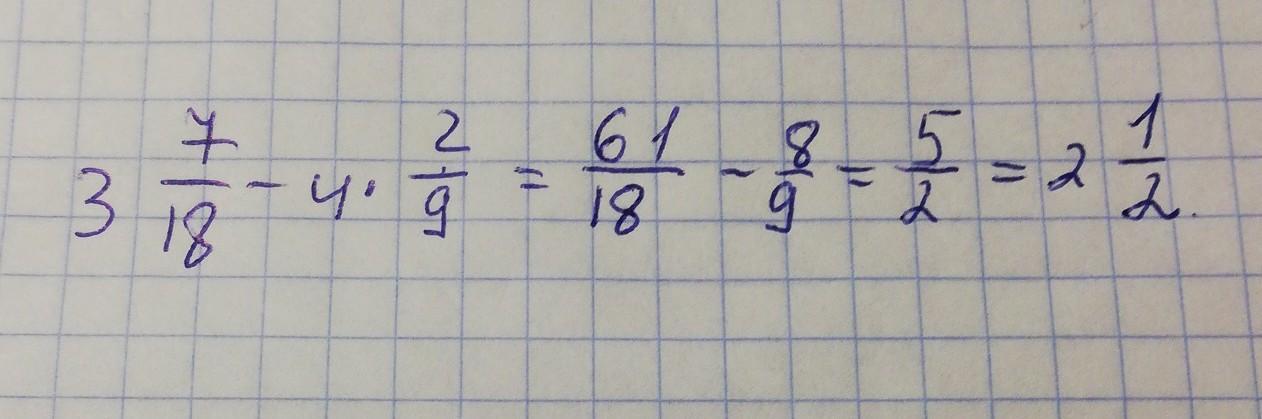 3 7/18 - 4 · 2/9 = 61/18 - 8/9 = 5/2 = 2 1/2.